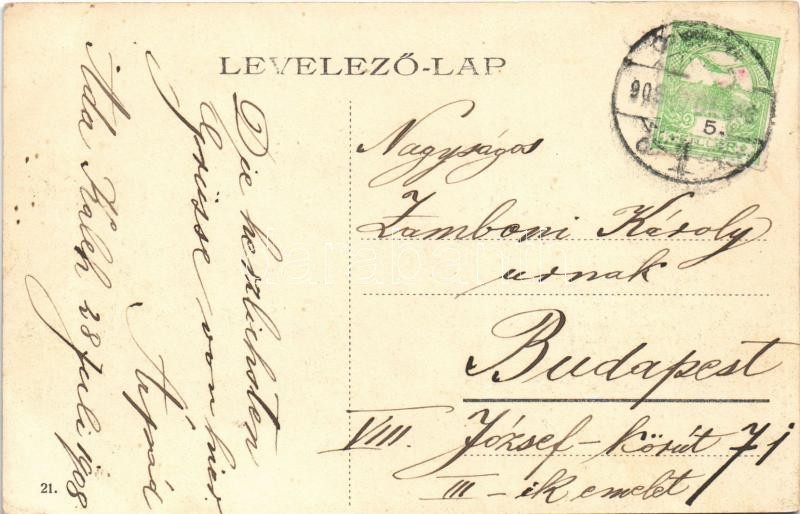 LEVELEZŐ-LAP
Die herzlichsten
Grüsse von hier
Árpád
Ada Kaleh 28 Juli 1908
Nagyságos
Zamboni Károly
urnak
Budapest
VIII. József-körút 71
III-ik emelet
5.
21.